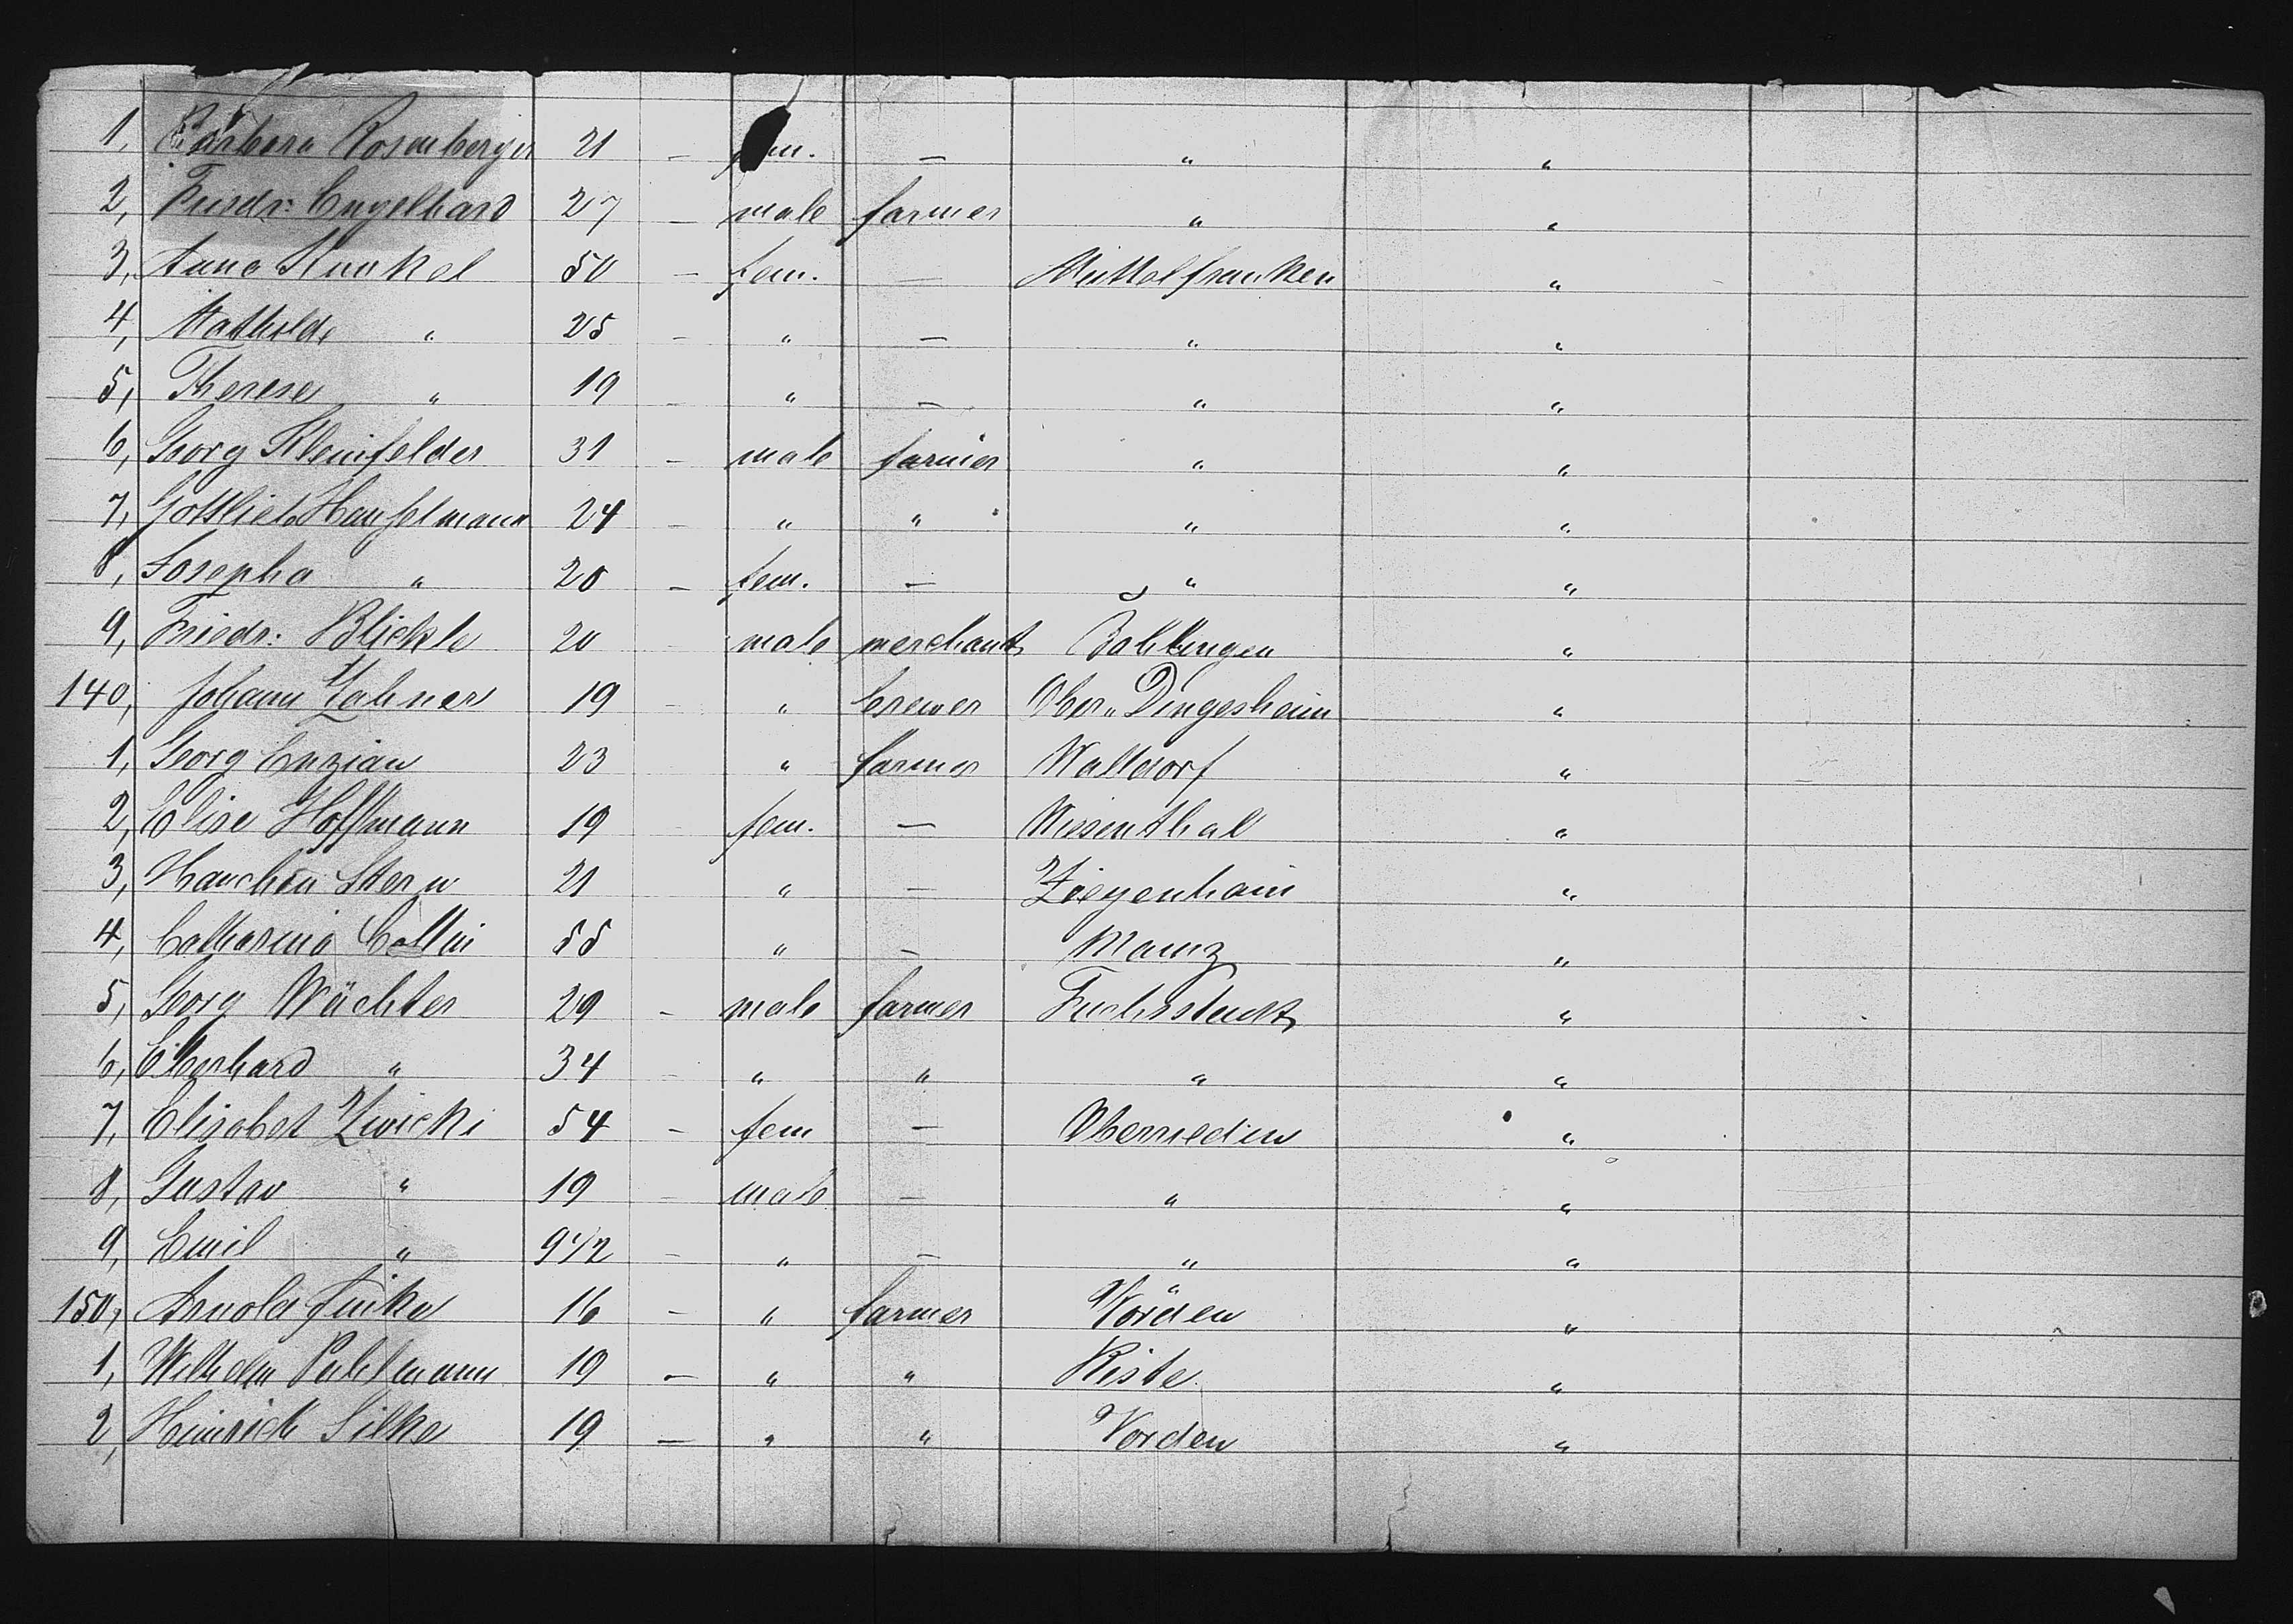 1, Barbara Rosenberger 21 – fem. – " "
2, Friedr: Engelhard 27 – male farmer " "
3, Anna Kunkel 50 – fem. – Mittelfranken "
4, Mathilde " 25 – " – " "
5, Therese " 19 – " – " "
6, Georg Kleinfelder 31 – male farmer " "
7, Gottlieb 24 – " " " "
8, Josepha " 20 – fem. – " "
9, Friedr: Blickle 20 – male merchant "
140, Johann Zahner 19 – " brewer Ober "
1, Georg Enzian 23 " farmer Walldorf "
2, Elise Hoffmann 19 – fem. – Wiesenthal "
3, Hanchen Stern 21 " – Ziegenhain "
4, Catharina 55 " – Mainz "
5, Georg Wächter 29 – male farmer "
6, Eberhard " 34 – " " " "
7, Elisabet Zwicki 54 – fem – "
8, Gustav " 19 – male – " "
9, Emil " 9 1/2 – " – " "
150, Arnold 16 – " farmer Vörden "
1, Wilhelm 19 – " " Riste. "
2, Heinrich Silke 19 – " " Vorden "